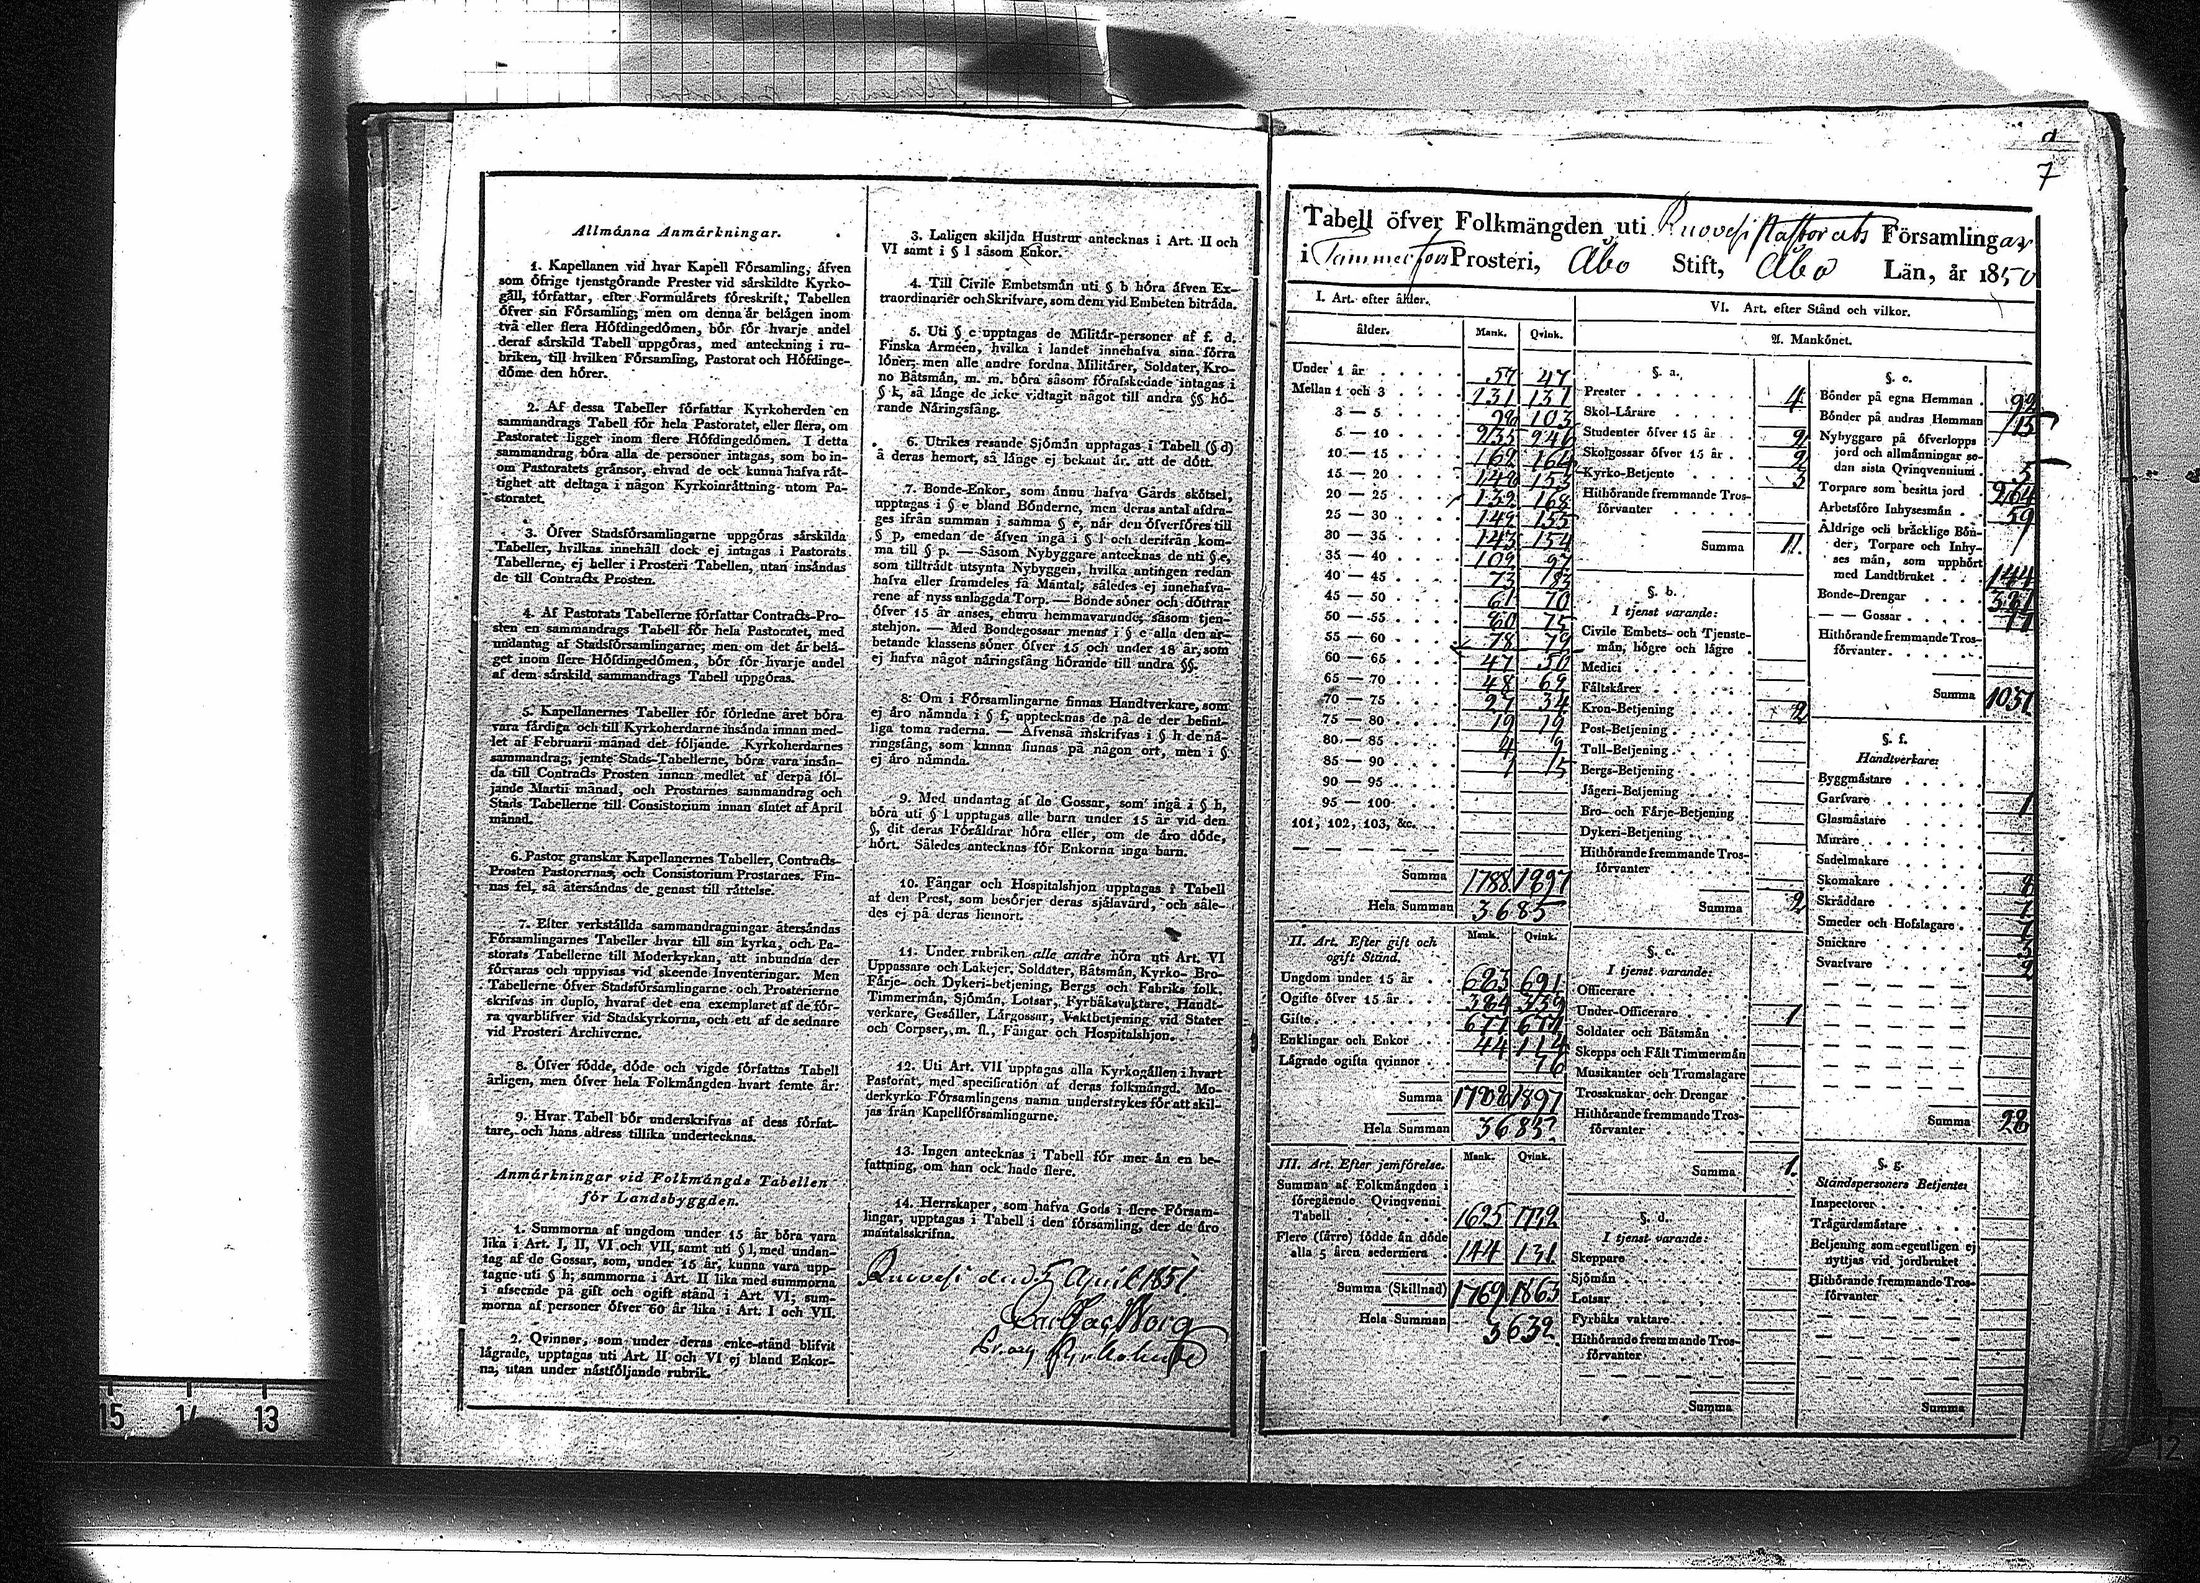 Allmånna Anmårkningar.
1. Kapellanen vid hvar Kapell Fórsamling, åfven
som öfrige tjenstgörande Prester vid sårskildte Kyrko-
gåll, författar, efter Formulårets föreskrift, Tabellen
öfver sin Församling; men om denna år belågen inom
två eller flera Höfdingedömen, bör för hvarje andel
deraf sårskild Tabell uppgöras, med anteckning i ru-
briken, till hvilken Församling, Pastorat och Höfdinge-
döme den hörer.
2. Af dessa Tabeller författar Kyrkoherden en
sammandrags Tabell för hela Pastoratet, eller flera, om
Pastoratet ligger inom flere Höfdingedömen. I detta
sammandrag böra alla de personer intagas, som bo in-
om Pastoratets grånsor, ehvad de ock kunna hafva råt-
tighet att deltaga i någon Kyrkoinråttning utom Pa-
storatet.
3. Öfver Stadsförsamlingarne uppgöras sårskilda
Tabeller, hvilkas innehåll dock ej intages i Pastorats
Tabellerne, ej heller i Prosteri Tabellen, utan insåndas
de till Contracts Prosten.
4. Af Pastorats Tabellerne författar Contracts-Pro-
sten en sammandrags Tabell för hela Pastoratet, med
undantag af Stadsförsamlingarne; men om det år belå-
get inom flere Höfdingedömen, bör för hvarje andel
af dem sårskild sammandrags Tabell uppgöras.
5. Kapellanernes Tabeller för förledne året böra
vara fårdiga och till Kyrkoherdarne insånda innan med-
let af Februarii månad det följande. Kyrkoherdarnes
sammandrag, jemte Stads-Tabellerne, böra vara insån-
da till Contracts Prosten innan medlet af derpå föl-
jande Martii månad, och Prostarnes sammandrag och
Stads Tabellerne till Consistorium innan slutet af April
månad.
6. Pastor granskar Kapellanernes Tabeller, Contracts-
Prosten Pastorernas, och Consistorium Prostarnes. Fin-
nas fel, så återsåndas de genast till råttelse.
7. Efter verkstållda sammandragningar återsåndas
Församlingarnes Tabeller hvar till sin kyrka, och Pa-
storats Tabellerne till Moderkyrkan, att inbundna der
förvaras och uppvisas vid skeende Inventeringar. Men
Tabellerne öfver Stadsförsamlingarne och Prosterierne
skrifvas in duplo, hvaraf det ena exemplaret af de för-
ra qvarblifver vid Stadskyrkorna, och ett af de sednare
vid Prosteri Archiverne.
8. Öfver födde, döde och vigde författas Tabell
årligen, men öfver hela Folkmångden hvart femte år.
9. Hvar Tabell bör underskrifvas af dess förfat-
tare, och hans adress tillika undertecknas.
Anmårkningar vid Folkmångds Tabellen
för Landsbyggden.
1. Summorna af ungdom under 15 år böra vara
lika i Art. I, II, VI och VII, samt uti § l, med undan-
tag af de Gossar, som, under 15 år, kunna vara upp-
tagne uti § h; summorna i Art. II lika med summorna
i afseende på gift och ogift stånd i Art. VI; sum-
morna af personer öfver 60 år lika i Art. I och VII.
2. Qvinnor, som under deras enke-stånd blifvit
lågrade, upptagas uti Art. II och VI ej bland Enkor-
na, utan under nåstföljande rubrik.
3. Laligen skiljda Hustrur antecknas i Art. II och
VI samt i § l såsom Enkor.
4. Till Civile Embetsmån uti § b höra åfven Ex-
traordinarier och Skrifvare, som dem vid Embeten bitråda.
5. Uti § c upptagas de Militår-personer af f. d.
Finska Arméen, hvilka i landet innehafva sina förra
löner; men alle andre fordna Militårer, Soldater, Kro-
no Båtsmån, m. m. böra såsom förafskedade intagas i
§ k, så långe de icke vidtagit något till andra §§ hö-
rande Nåringsfång.
6. Utrikes resande Sjömån upptagas i Tabell (§ d)
å deras hemort, så långe ej bekant år, att de dött.
7. Bonde-Enkor, som ånnu hafva Gårds skötsel,
upptagas i § e bland Bönderne, men deras antal afdra-
ges ifrån summan i samma § e, når den öfverföres till
§ p, emedan de åfven ingå i § l och derifrån kom-
ma till § p. — Såsom Nybyggare antecknas de uti § e,
som tilltrådt utsynta Nybyggen, hvilka antingen redan
hafva eller framdeles få Måntal; således ej innehafva-
rene af nyss anlaggda Torp. — Bonde söner och döttrar
öfver 15 år anses, ehuru hemmavarande, såsom tjen-
stehjon. — Med Bondegossar menas i § e alla den ar-
betande klassens söner öfver 15 och under 18 år, som
ej hafva något nåringsfång hörande till andra §§.
8. Om i Församlingarne finnas Handtverkare, som
ej åro nåmnda i § f, upptecknas de på de der befint-
liga toma raderna. — Åfvenså inskrifvas i § h de nå-
ringsfång, som kunna finnas på någon ort, men i §
ej åro nåmnda.
9. Med undantag af de Gossar, som ingå i § h,
böra uti § l upptagas alle barn under 15 år vid den
§, dit deras Föråldrar höra eller, om de åro döde,
hört. Således antecknas för Enkorna inga barn.
10. Fångar och Hospitalshjon upptagas i Tabell
af den Prest, som besörjer deras sjålavård, och såle-
des ej på deras hemort.
11. Under rubriken alle andre höra uti Art. VI
Uppassare och Lakejer, Soldater, Båtsmån, Kyrko- Bro-
Fårje- och Dykeri-betjening, Bergs och Fabriks folk,
Timmermån, Sjömån, Lotsar, Fyrbåksvaktare, Handt-
verkare, Gesåller, Lårgossar, Vaktbetjening vid Stater
och Corpser, m. fl., Fångar och Hospitalshjon.
12. Uti Art. VII upptagas alla Kyrkogållen i hvart
Pastorat, med specification af deras folkmångd. Mo-
derkyrko Församlingens namn understrykes för att skil-
jas från Kapellförsamlingarne.
13. Ingen antecknas i Tabell för mer ån en be-
fattning, om han ock hade flere.
14. Herrskaper, som hafva Gods i flere Försam-
lingar, upptagas i Tabell i den församling, der de åro
mantalsskrifna.
Ruovesi den 5 April 1851
7
Tabell öfver Folkmängden uti Ruovesi Pastorats Församlingar
i Tammerfors Prosteri, Åbo Stift, Åbo Län, år 1850
I. Art. efter ålder.
ålder. Mank. Qvink.
Under 1 år 57 47
Mellan 1 och 3 131 131
3 — 5 103
5 — 10 235 246
10 — 15 162 164
15 — 20 148 153
20 — 25 132 168
25 — 30 142 155
30 — 35 143 154
35 — 40 109 97
40 — 45 73 83
45 — 50 61 70
50 — 55 80 75
55 — 60 78 79
60 — 65 47 50
65 — 70 48 62
70 — 75 27 34
75 — 80 19 19
80 — 85 4
85 — 90 1
90 — 95
95 — 100
101, 102, 103, &c.
Summa 1788 1897
Hela Summan 3685
II. Art. Efter gift och
ogift Stånd. Mank. Qvink.
Ungdom under 15 år 683 691
Ogifte öfver 15 år 384 339
Gifte 677 677
Enklingar och Enkor 44 114
Lågrade ogifta qvinnor 76
Summa 1788 1897
Hela Summan 3685
III. Art. Efter jemförelse. Mank. Qvink.
Summan af Folkmångden i
föregående Qvinqvenni
Tabell 1625 1732
Flere (fårre) födde ån döde
alla 5 åren sedermera 144 131
Summa (Skillnad) 1769 1863
Hela Summan 3632
VI. Art. efter Stånd och vilkor.
A. Mankönet.
§. a.
Prester 4
Skol-Lårare
Studenter öfver 15 år 2
Skolgossar öfver 15 år 2
Kyrko-Betjente 3
Hithörande fremmande Tros-
förvanter
Summa 11.
§. b.
I tjenst varande:
Civile Embets- och Tjenste-
mån, högre och lågre
Medici
Fåltskårer
Kron-Betjening 2
Post-Betjening
Tull-Betjening
Bergs-Betjening
Jågeri-Betjening
Bro- och Fårje-Betjening
Dykeri-Betjening
Hithörande fremmande Tros-
förvanter
Summa 2
§. c.
I tjenst varande:
Officerare
Under-Officerare 1
Soldater och Båtsmån
Skepps och Fålt Timmermån
Musikanter och Trumslagare
Trosskuskar och Drengar
Hithörande fremmande Tros-
förvanter
Summa 1.
§. d.
I tjenst varande:
Skeppare
Sjömån
Lotsar
Fyrbåks vaktare
Hithörande fremmande Tros-
förvanter
Summa
§. e.
Bönder på egna Hemman 92
Bönder på andras Hemman 115
Nybyggare på öfverlopps
jord och allmånningar se-
dan sista Qvinqvennium 5
Torpare som besitta jord 264
Arbetsföre Inhysesmån 59
Åldrige och bråcklige Bön-
der, Torpare och Inhy-
ses mån, som upphört
med Landtbruket 144
Bonde-Drengar
— — Gossar
Hithörande fremmande Tros-
förvanter
Summa 1051
§. f.
Handtverkare:
Byggmåstare
Garfvare 1
Glasmåstare
Murare
Sadelmakare
Skomakare 8
Skråddare 7
Smeder och Hofslagare 7
Snickare 3
Svarfvare 2
Summa 28
§. g.
Ståndspersoners Betjente:
Inspectorer
Trågårdsmåstare
Betjening som egentligen ej
nyttjas vid jordbruket
Hithörande fremmande Tros-
förvanter
Summa
15 14 13
12